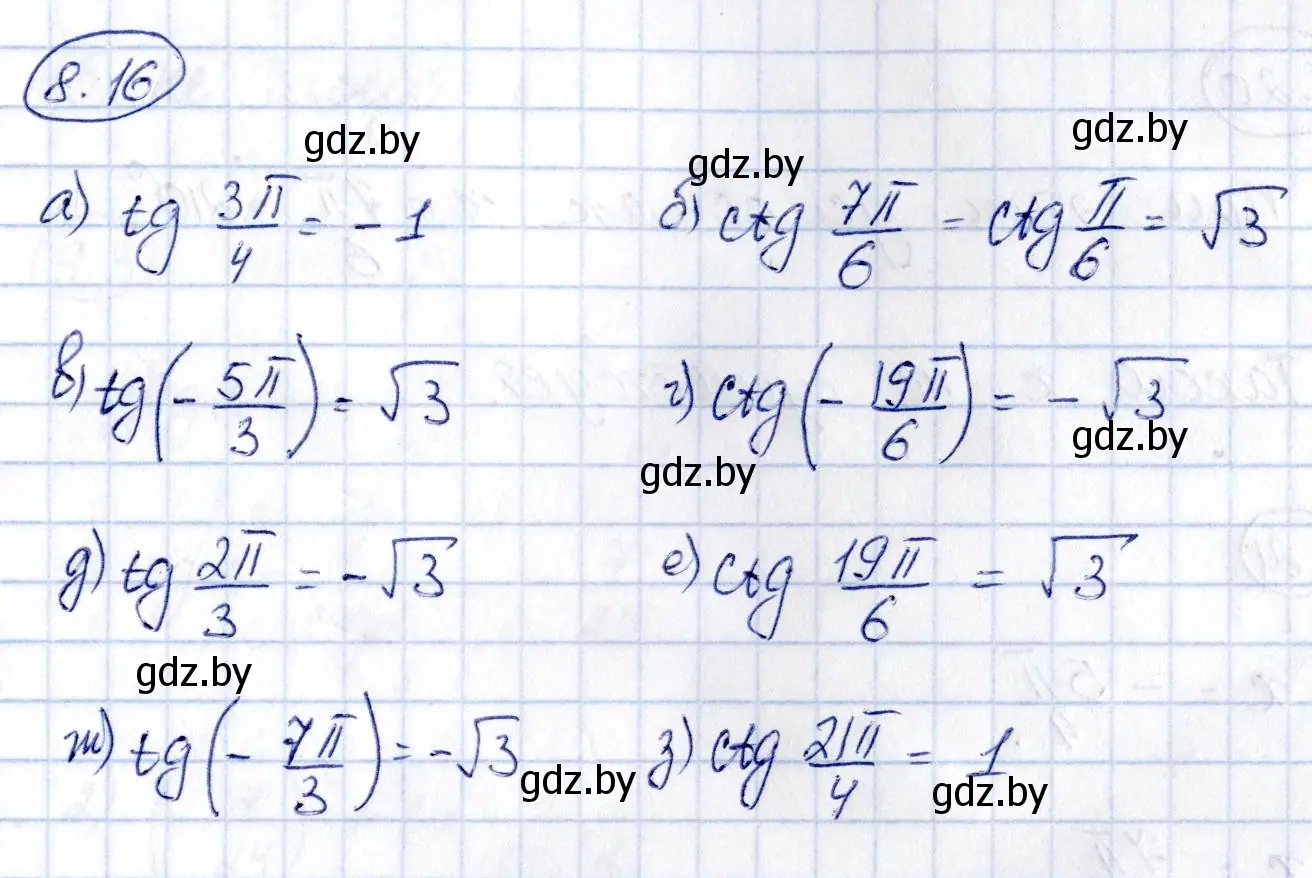 8.16
gdz.by
gdz.by
gdz.by
а) tg 3π/4 = - 1
б) ctg 7π/6 = ctg π/6 = √3
в) tg(- 5π/3) = √3
г) ctg(- 19π/6) = - √3
gdz.by
gdz.by
д) tg 2π/3 = - √3
е) ctg 19π/6 = √3
gdz.by
ж) tg(- 7π/3) = - √3
з) ctg 21π/4 = 1
gdz.by
gdz.by